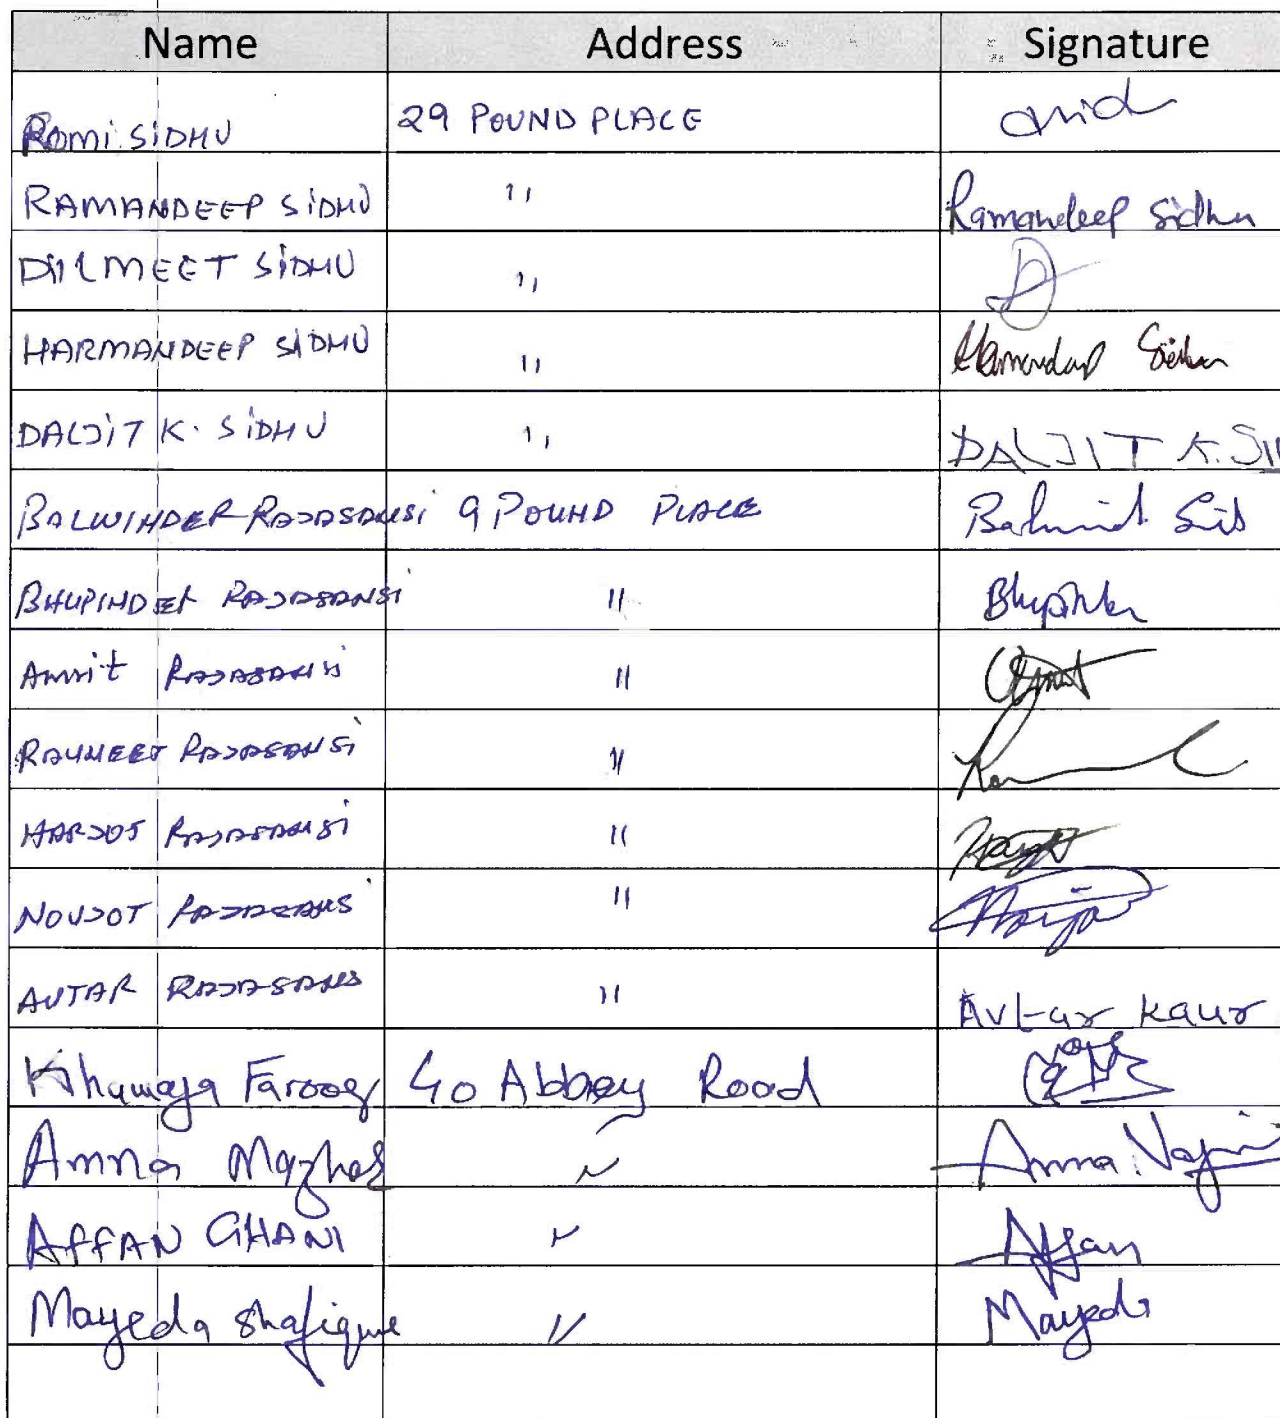 Name Address Signature
Romi SiDHU 29 POUND PLACE
RAMANDEEP SiDHU " Ramandeep Sidhu
DilMEET SiDHU "
HARMANDEEP SIDHU "
DALJiT K. SiDHU " DALJIT K. SI
BALWINDER RAJASANSi 9 POUND PLACE
BHUPINDER RAJASANSi "
Amrit RAJASANSi "
RAVNEET RAJASANSi "
HARJOT RAJASANSi "
NOVJOT RAJASANS "
AVTAR RAJASANS " Avtar kaur
Khawaja Farooq 40 Abbey Road
Amna Mazhar " Amna
AFFAN GHANI " Affan
Mayeda Shafique " Mayeda